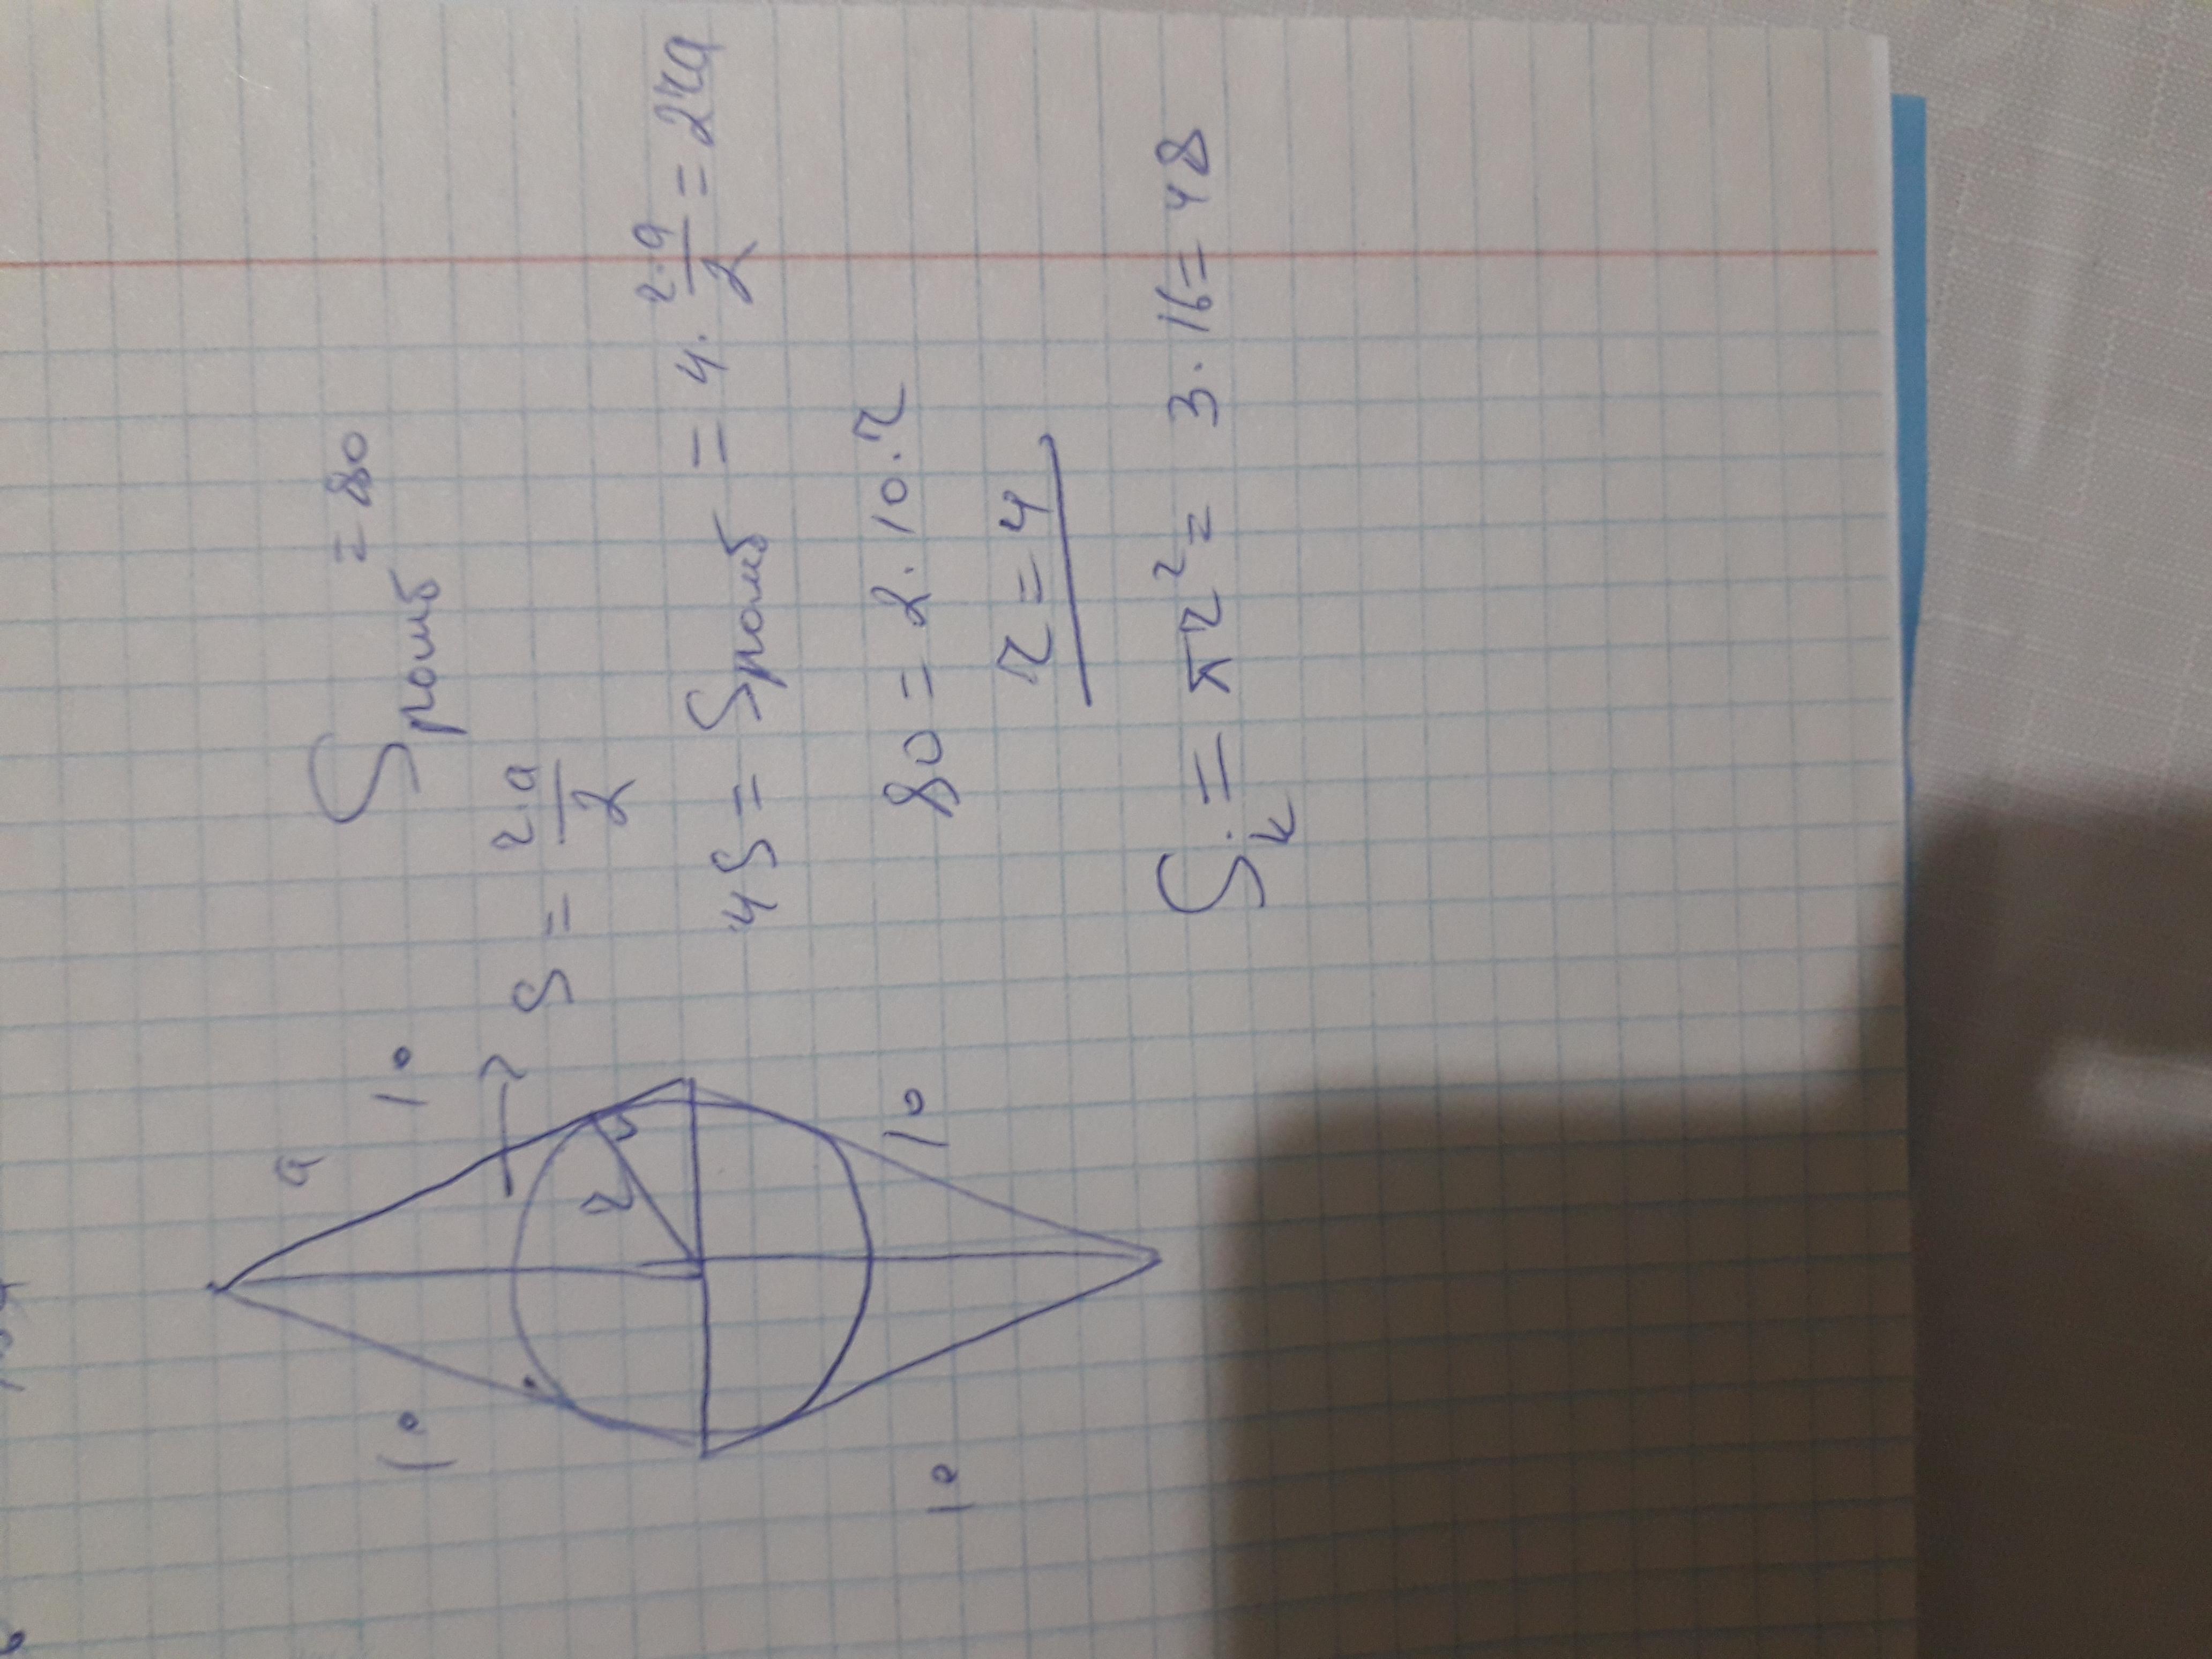 S ромб = 80
a
10
10
r
S = r·a/2
4S = S ромб = 4·r·a/2 = 2ra
80 = 2·10·r
r = 4
10
10
Sк = πr² = 3·16 = 48